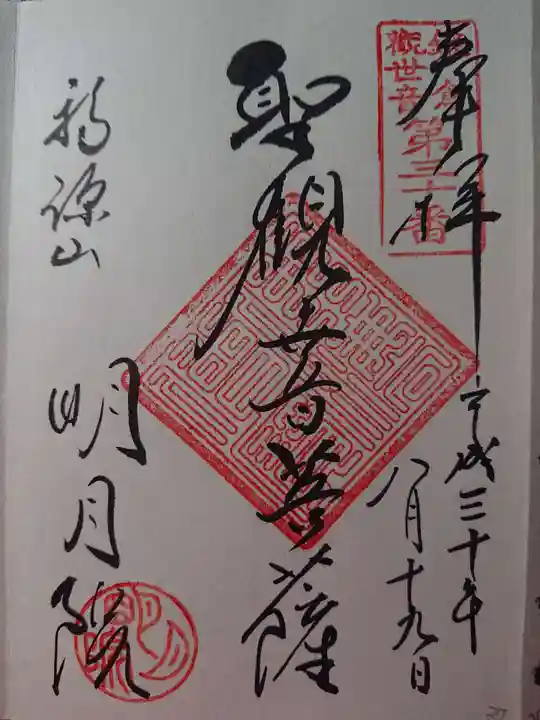 奉拝
鎌倉
観世音
第三十番
平成三十年
八月十九日
聖観世音菩薩
福源山
明月院